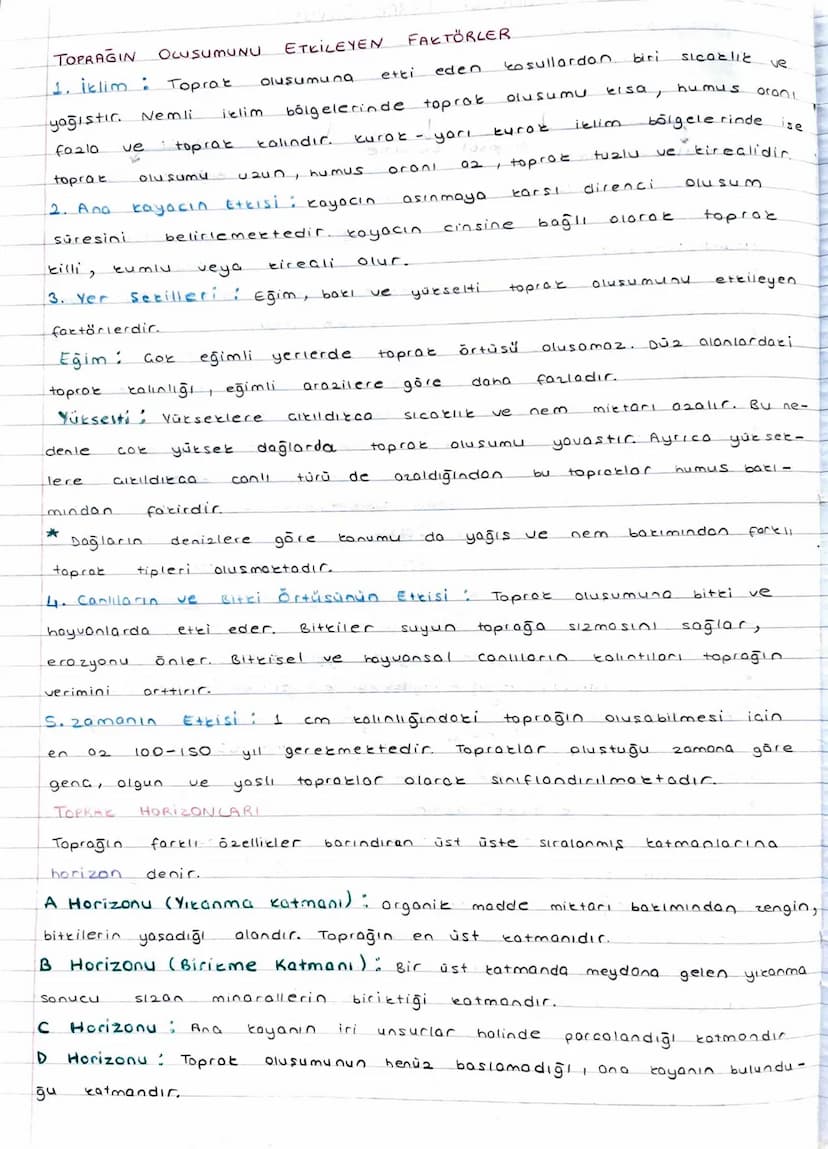 TOPRAĞIN OLUŞUMUNU ETKİLEYEN FAKTÖRLER
1. İklim : Toprak oluşumuna etki eden koşullardan biri sıcaklık ve
yağıştır. Nemli iklim bölgelerinde toprak oluşumu kısa, humus oranı
fazla ve toprak kalındır. Kurak-yarı kurak iklim bölgelerinde ise
toprak oluşumu uzun, humus oranı az, toprak tuzlu ve kireçlidir.
2. Ana Kayacın Etkisi : Kayacın aşınmaya karşı direnci oluşum
süresini belirlemektedir. Kayacın cinsine bağlı olarak toprak
killi, kumlu veya kireçli olur.
3. Yer Şekilleri : Eğim, bakı ve yükselti toprak oluşumunu etkileyen
faktörlerdir.
Eğim : Çok eğimli yerlerde toprak örtüsü oluşamaz. Düz alanlardaki
toprak kalınlığı, eğimli arazilere göre daha fazladır.
Yükselti : Yükseklere çıkıldıkça sıcaklık ve nem miktarı azalır. Bu ne-
denle çok yüksek dağlarda toprak oluşumu yavaştır. Ayrıca yüksek-
lere çıkıldıkça canlı türü de azaldığından bu topraklar humus bakı-
mından fakirdir.
* Dağların denizlere göre konumu da yağış ve nem bakımından farklı
toprak tipleri oluşmaktadır.
4. Canlıların ve Bitki Örtüsünün Etkisi : Toprak oluşumuna bitki ve
hayvanlarda etki eder. Bitkiler suyun toprağa sızmasını sağlar,
erozyonu önler. Bitkisel ve hayvansal canlıların kalıntıları toprağın
verimini arttırır.
5. Zamanın Etkisi : 1 cm kalınlığındaki toprağın oluşabilmesi için
en az 100-150 yıl gerekmektedir. Topraklar oluştuğu zamana göre
genç, olgun ve yaşlı topraklar olarak sınıflandırılmaktadır.
TOPRAK HORİZONLARI
Toprağın farklı özellikler barındıran üst üste sıralanmış katmanlarına
horizon denir.
A Horizonu (Yıkanma Katmanı) : Organik madde miktarı bakımından zengin,
bitkilerin yaşadığı alandır. Toprağın en üst katmanıdır.
B Horizonu (Birikme Katmanı) : Bir üst katmanda meydana gelen yıkanma
sonucu sızan minarallerin biriktiği katmandır.
C Horizonu : Ana kayanın iri unsurlar halinde parçalandığı katmandır
D Horizonu : Toprak oluşumunun henüz başlamadığı, ana kayanın bulundu-
ğu katmandır.